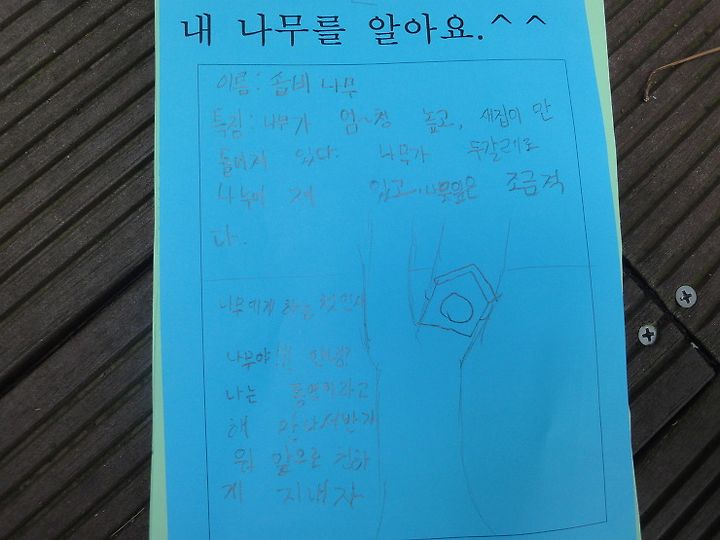 내 나무를 알아요.^^
이름: 솝비 나무
특징: 나무가 엄청 높고, 새집이 만
들어져 있다. 나무가 두갈레로
나누어 져 있고, 나뭇잎은 조금적
다.
나무에게 하는 첫인사
나무야!! 안녕?
나는 라고
해 만나서반가
워 앞으로 친하
게 지내자